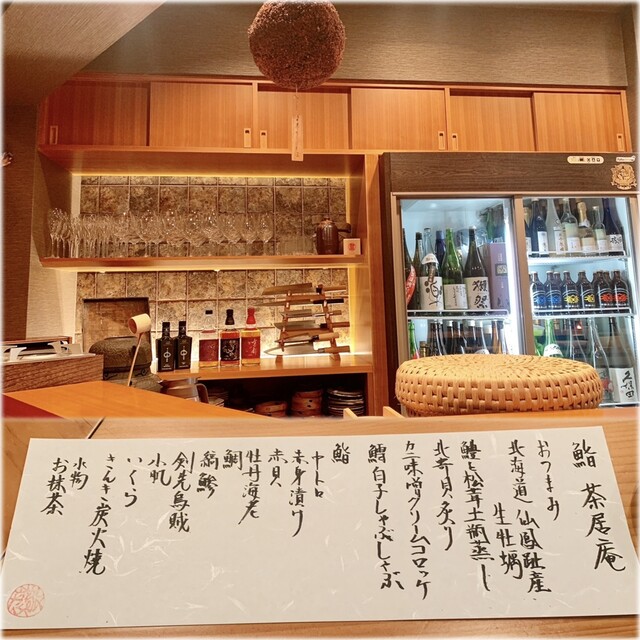 鮨 茶居庵
おつまみ
北海道 仙鳳趾産
生牡蠣
鱧と松茸土瓶蒸し
北寄貝炙り
カニ味噌クリームコロッケ
鱈白子しゃぶしゃぶ
鮨
中トロ
赤身漬け
赤貝
牡丹海老
鯛
縞鯵
剣先烏賊
小肌
いくら
きんき炭火焼
水物
お抹茶
獺祭
久保田